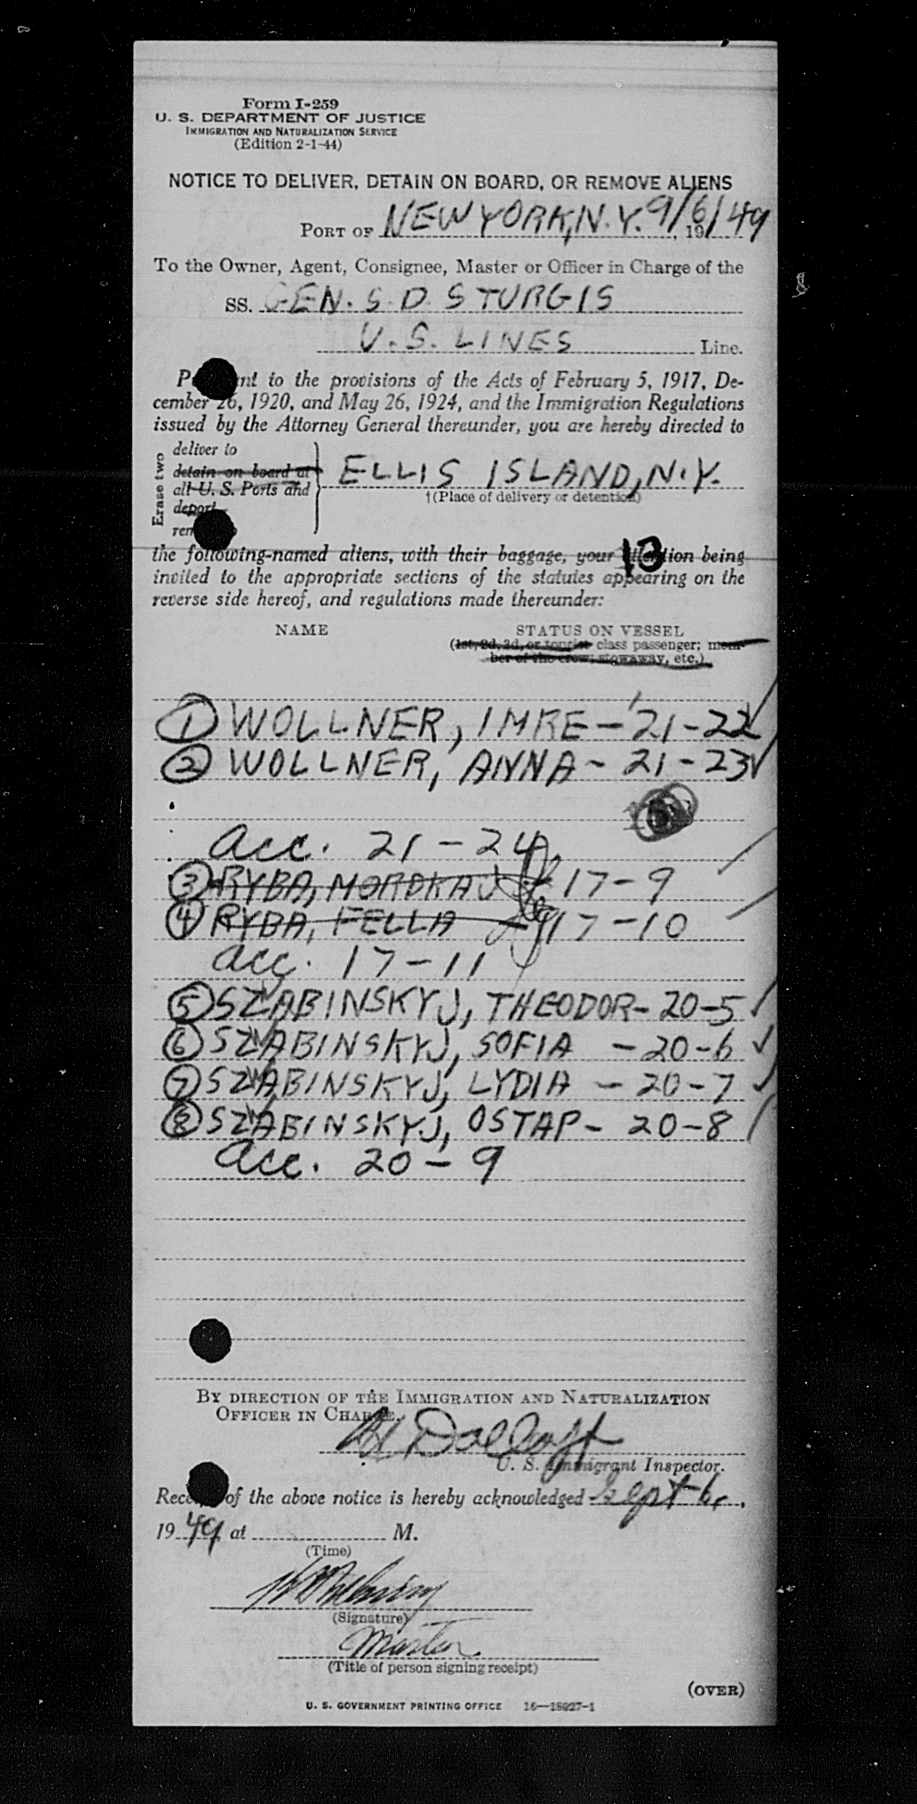 Form I-259
U. S. DEPARTMENT OF JUSTICE
IMMIGRATION AND NATURALIZATION SERVICE
(Edition 2-1-44)
NOTICE TO DELIVER, DETAIN ON BOARD, OR REMOVE ALIENS
PORT OF NEW YORK, N.Y. 9/6/49, 19
To the Owner, Agent, Consignee, Master or Officer in Charge of the
SS. GEN. S. D. STURGIS
U.S. LINES Line.
to the provisions of the Acts of February 5, 1917, De-
cember 26, 1920, and May 26, 1924, and the Immigration Regulations
issued by the Attorney General thereunder, you are hereby directed to
Erase two
deliver to
detain on board at
all U. S. Ports and
deport
ELLIS ISLAND, N.Y.
†(Place of delivery or detention)
13
the following-named aliens, with their baggage, your attention being
invited to the appropriate sections of the statutes appearing on the
reverse side hereof, and regulations made thereunder:
NAME STATUS ON VESSEL
(1st, 2d, 3d, or tourist class passenger; mem-
ber of the crew; stowaway, etc.)
1 WOLLNER, IMRE - 21-22 ✓
2 WOLLNER, ANNA - 21-23 ✓
acc. 21-24
3 RYBA, MORDKA J 17-9
4 RYBA, FELLA 17-10
acc. 17-11
5 SZABINSKYJ, THEODOR - 20-5 ✓
6 SZABINSKYJ, SOFIA - 20-6 ✓
7 SZABINSKYJ, LYDIA - 20-7 ✓
8 SZABINSKYJ, OSTAP - 20-8
acc. 20-9
BY DIRECTION OF THE IMMIGRATION AND NATURALIZATION
OFFICER IN CHARGE.
U. S. Immigrant Inspector.
of the above notice is hereby acknowledged Sept 6,
1949 at M.
(Time)
(Signature)
Master
(Title of person signing receipt)
(OVER)
U. S. GOVERNMENT PRINTING OFFICE 16—18927-1